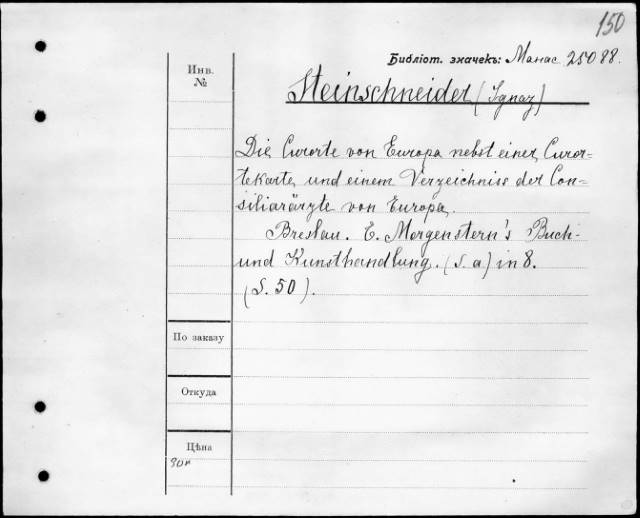 150
Библіот. значекъ: Манас 25088.
Инв.
№
Steinschneider (Ignaz)
Die Curorte von Europa nebst einer Curor=
tekarte und einem Verzeichniss der Con=
siliarärzte von Europa.
Breslau. E. Morgenstern's Buch-
und Kunsthandlung. (s. a) in 8.
(S. 50).
По заказу
Откуда
Цѣна